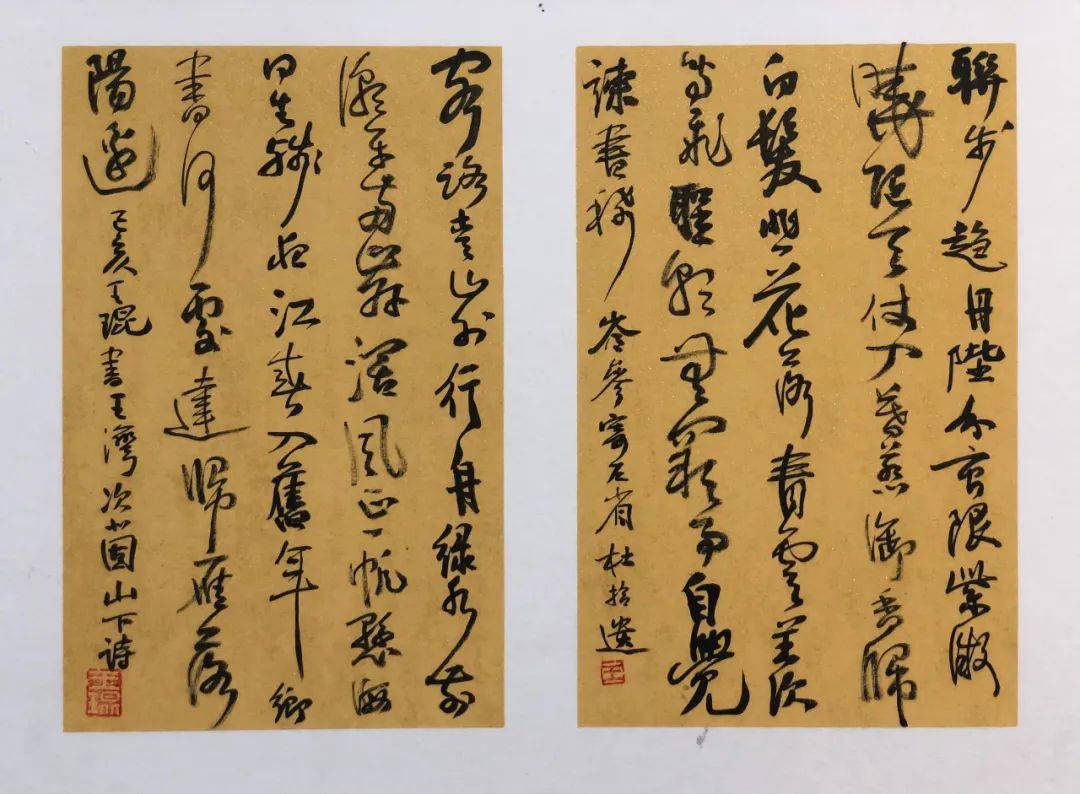 聯步趨丹陛分曹限紫微
曉隨天仗入暮惹御香歸
白髮悲花落青雲羨
鳥飛聖朝無闕事自覺
諫書稀 岑參寄左省杜拾遺
王
客路青山外行舟綠水前
潮平兩岸闊風正一帆懸海
日生殘夜江春入舊年鄉
書何處達歸雁洛
陽邊 己亥王琨書王灣次北固山下詩
王琨